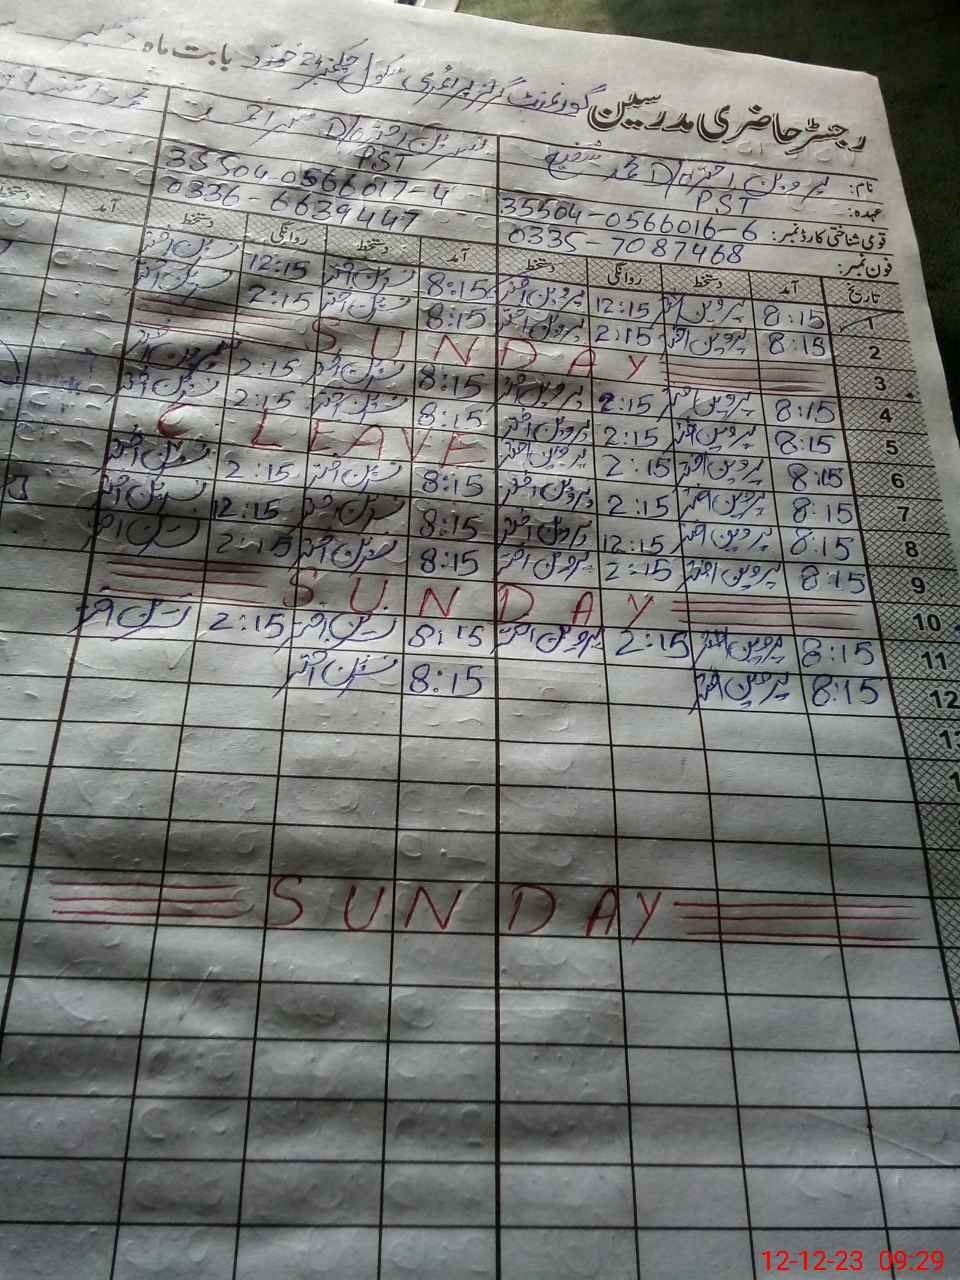 رجسٹر حاضری مدرسین گورنمنٹ گرلز پرائمری سکول چک نمبر 24 بابت ماہ دسمبر
نام: پروین اختر D/O محمد شفیع نسرین اختر D/O
عہدہ: PST PST
قومی شناختی کارڈ نمبر: 35504-0566016-6 35504-0566017-4
فون نمبر: 0335-7087468 0336-6639447
تاریخ آمد دستخط روانگی دستخط آمد دستخط روانگی دستخط آمد
1 8:15 پروین اختر 12:15 پروین اختر 8:15 نسرین اختر 12:15 نسرین اختر
2 8:15 پروین اختر 2:15 پروین اختر 8:15 نسرین اختر 2:15 نسرین اختر
3 SUNDAY
4 8:15 پروین اختر 2:15 پروین اختر 8:15 نسرین اختر 2:15 نسرین اختر
5 8:15 پروین اختر 2:15 پروین اختر 8:15 نسرین اختر 2:15 نسرین اختر
6 8:15 پروین اختر 2:15 پروین اختر C. LEAVE
7 8:15 پروین اختر 2:15 پروین اختر 8:15 نسرین اختر 2:15 نسرین اختر
8 8:15 پروین اختر 12:15 پروین اختر 8:15 نسرین اختر 12:15 نسرین اختر
9 8:15 پروین اختر 2:15 پروین اختر 8:15 نسرین اختر 2:15 نسرین اختر
10 SUNDAY
11 8:15 پروین اختر 2:15 پروین اختر 8:15 نسرین اختر 2:15 نسرین اختر
12 8:15 پروین اختر 8:15 نسرین اختر
SUNDAY
12-12-23 09:29